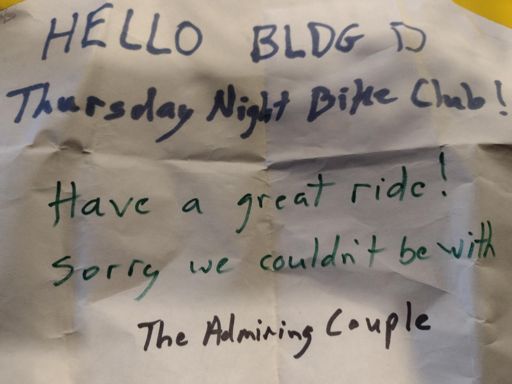 HELLO BLDG D
Thursday Night Bike Club!
Have a great ride!
Sorry we couldn't be with
The Admiring Couple